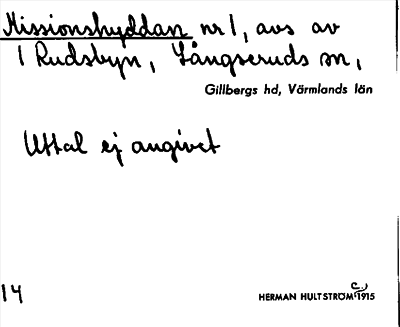 Missionshyddan nr 1, avs av
1 Rudsbyn, Långseruds sn,
Gillbergs hd, Värmlands län
Uttal ej angivet
14
HERMAN HULTSTRÖM c:a 1915